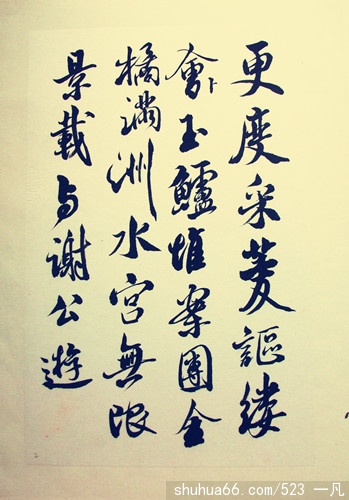 更度采菱謳縷
會卜玉鱸堆案團金
橘滿洲水宮無限
景載与謝公遊
shuhua66.com/523 一凡